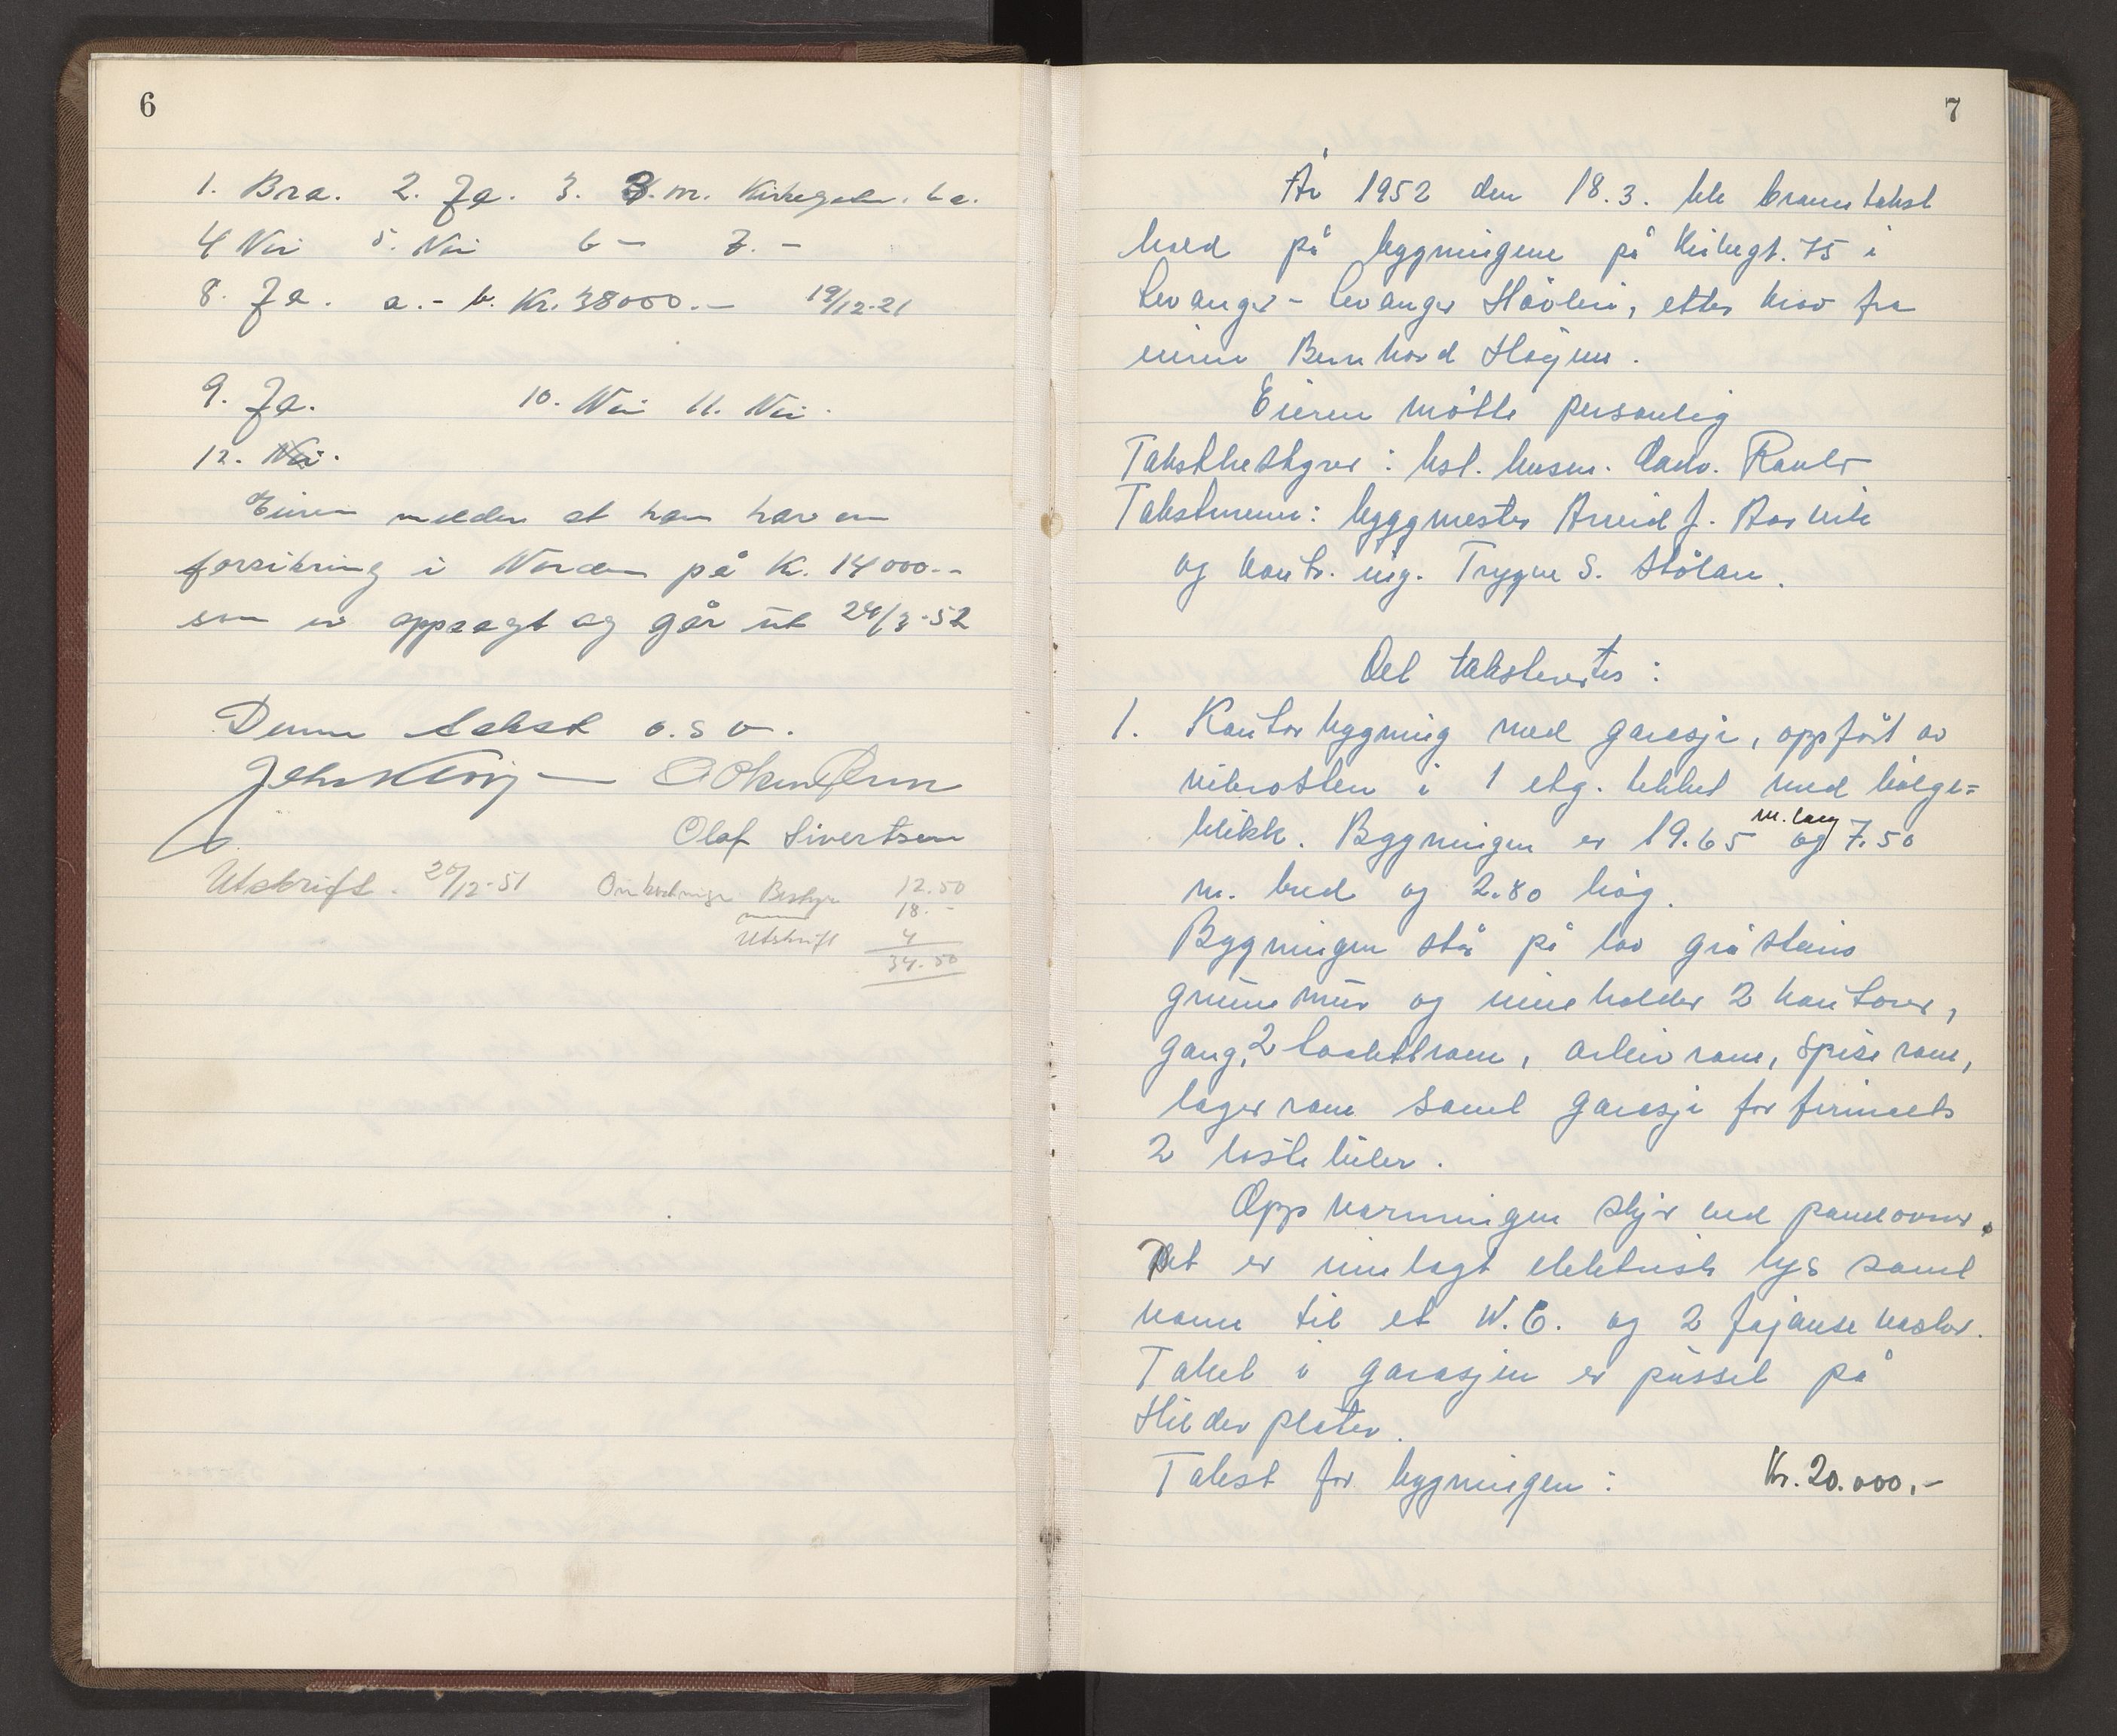 6
1. Bra. 2. Ja. 3. 3.m. Kirkegaten. 6 a.
4 Nei 5. Nei 6 — 7. —
8. Ja. a. - b. Kr. 38000.— 19/12-21
9. Ja. 10. Nei 11. Nei.
12. Nei.
Eieren melder at han har en
forsikring i Norden på Kr. 14000.-
som er oppsagt og går ut 24/3-52
Denne takst o.s.v.
Olaf Sivertsen
Utskrift. 20/12-51 Omkostninger Bestyr 12.50
18.-
Utskrift 4
34.50
7
År 1952 den 18.3. ble branntakst
holdt på bygningene på Kirkegt. 75 i
Levanger - Levanger Høvleri, etter krav fra
eieren Bernhard Høgnes.
Eieren møtte personlig
Takstbestyrer: kst. lensm.
Takstmenn: byggmester Arvid J. Aasvik
og kontr. ing. Trygve S. Stølan.
Det taksertes:
1. Kontorbygning med garasje, oppført av
vibrosten i 1 etg. tekket med bølge=
blikk. Bygningen er 19.65 m. lang og 7.50
m. bred og 2.80 høg.
Bygningen står på lav gråsteins
grunnmur og inneholder 2 kontorer,
gang, 2 toalettrom, arkivrom, spiserom,
lagerrom samt garasje for firmaets
2 lastebiler.
Oppvarmingen skjer ved panelovner.
Det er innlagt elektrisk lys samt
vann til et W.C. og 2 fajanse vasker.
Taket i garasjen er pusset på
Hilderplater.
Takst for bygningen: Kr. 20.000,-